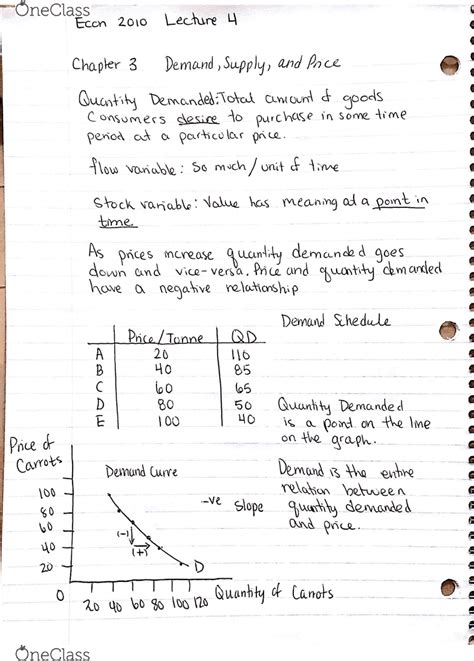 OneClass
Econ 2010 Lecture 4
Chapter 3 Demand, Supply, and Price
Quantity Demanded: Total amount of goods
Consumers desire to purchase in some time
period at a particular price.
flow variable: So much / unit of time
Stock variable: Value has meaning at a point in
time
As prices increase quantity demanded goes
down and vice-versa. Price and quantity demanded
have a negative relationship
Demand Schedule
Price/Tonne QD
A 20 110
B 40 85
C 60 65
D 80 50
E 100 40
Quantity Demanded
is a point on the line
on the graph.
Price of
Carrots
Demand Curve
Demand is the entire
relation between
quantity demanded
and price.
-ve slope
100
80
60
40
20
0
(-)
(+)
D
20 40 60 80 100 120
Quantity of Carrots
OneClass